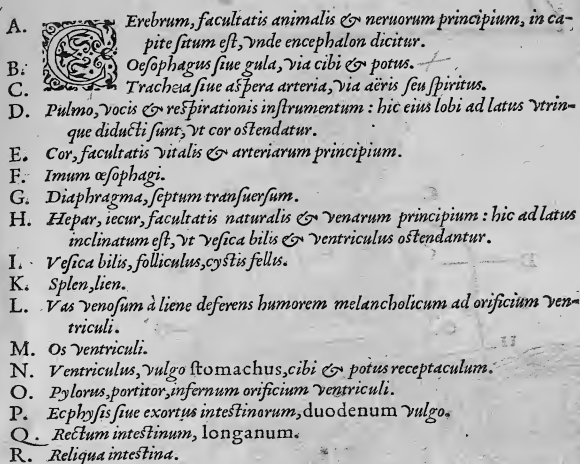 A. CErebrum, facultatis animalis & neruorum principium, in ca-
pite ſitum eſt, vnde encephalon dicitur.
B. Oeſophagus ſiue gula, via cibi & potus.
C. Tracheia ſiue aſpera arteria, via aëris ſeu ſpiritus.
D. Pulmo, vocis & reſpirationis inſtrumentum : hic eius lobi ad latus vtrin-
que diducti ſunt, vt cor oſtendatur.
E. Cor, facultatis vitalis & arteriarum principium.
F. Imum œſophagi.
G. Diaphragma, ſeptum tranſuerſum.
H. Hepar, iecur, facultatis naturalis & venarum principium : hic ad latus
inclinatum eſt, vt veſica bilis & ventriculus oſtendantur.
I. Veſica bilis, folliculus, cyſtis fellis.
K. Splen, lien.
L. Vas venoſum à liene deferens humorem melancholicum ad orificium ven-
triculi.
M. Os ventriculi.
N. Ventriculus, vulgo ſtomachus, cibi & potus receptaculum.
O. Pylorus, portitor, infernum orificium ventriculi.
P. Ecphyſis ſiue exortus inteſtinorum, duodenum vulgo.
Q. Rectum inteſtinum, longanum.
R. Reliqua inteſtina.